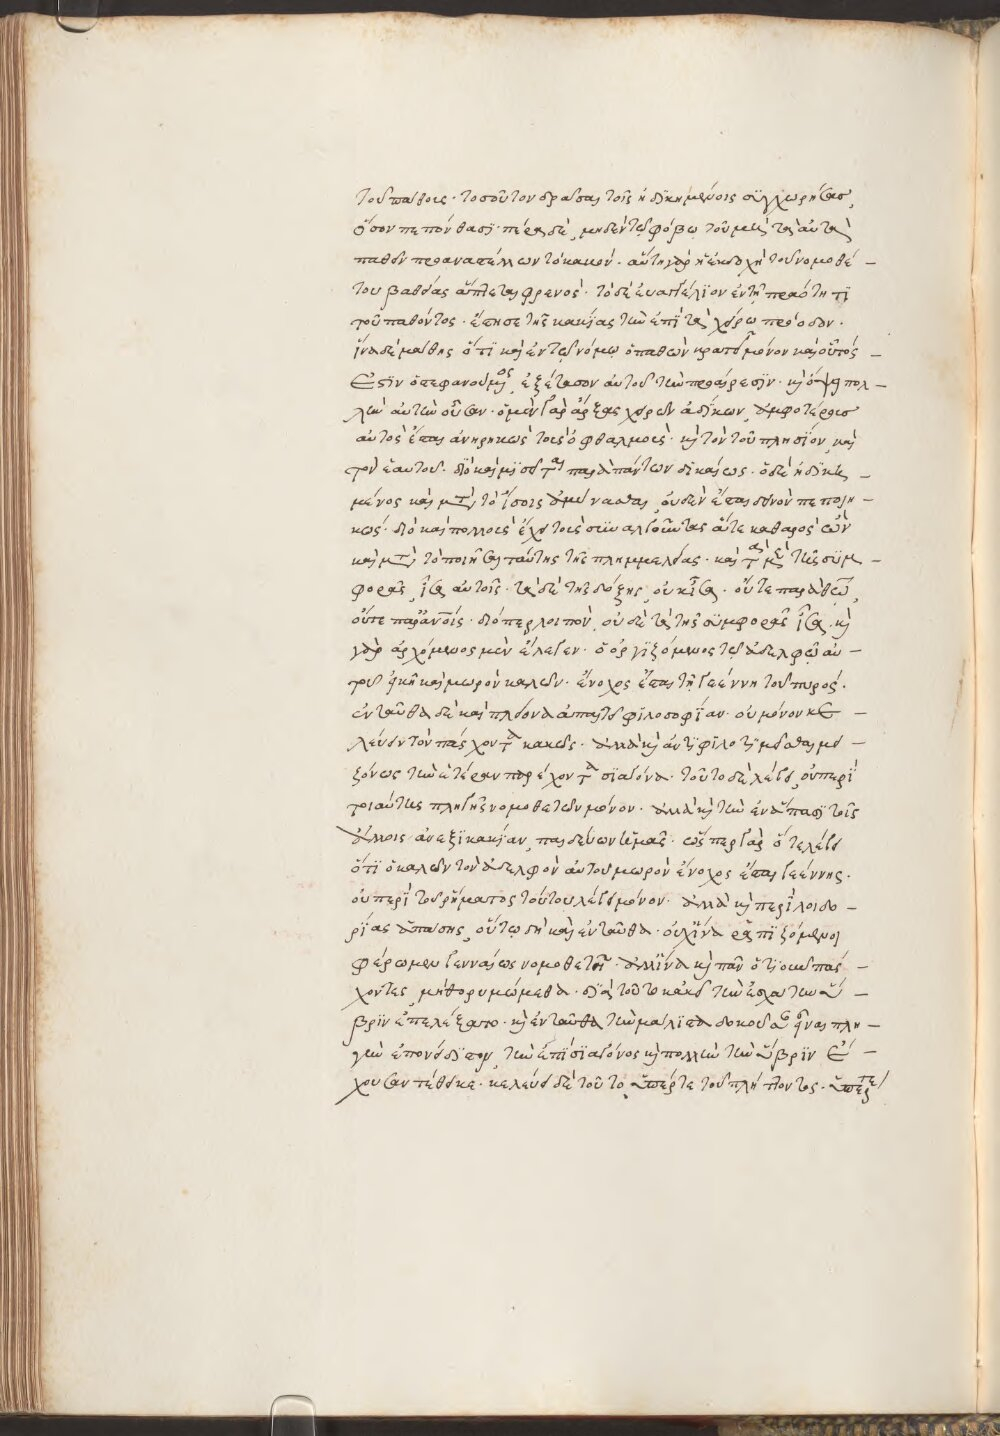 τοῦ πάθους· τοσοῦτον δρᾶσαι τοῖς ἠδικημένοις συγχωρήσας,
ὅσον πεπόνθασι· πέρας δὲ, μηδὲν τῷ φόβῳ τοῦ μεὶς τὰ αὐτὰ
παθεῖν προαναστέλλων τὸ κακόν· αὕτη γὰρ ἡ ἐκδοχὴ τοῦ νομοθέ –
του βαθείας ἅπτεται φρενός· τὸ δὲ εὐαγγέλιον ἐν τῇ πραότητι
τοῦ παθόντος· ἔστησε τῆς κακίας τὴν ἐπὶ τὰ χείρω πρόοδον·
ἵνα δὲ μάθῃς ὅτι καὶ ἐν τῷ νόμῳ ὁ παθὼν κρατεῖ μόνον καὶ οὗτός –
ἐστιν ὁ στεφανούμενος, ἐξέτασον αὐτοῦ τὴν προαίρεσιν· κὶ ὄψῃ πολ –
λὴν αὐτὴν οὖσαν· ὁ μὲν γὰρ ἄρξας χειρῶν ἀδίκων, ἀμφοτέρους
αὐτὸς ἔσται ἀνῃρηκὼς τοὺς ὀφθαλμούς· κὶ τὸν τοῦ πλησίον, καὶ
τὸν ἑαυτοῦ· διὸ καὶ μισεῖται παρὰ πάντων δικαίως· ὁ δὲ ἠδικη –
μένος καὶ μετὰ τὸ ἴσοις ἀμύνασθαι, οὐδὲν ἔσται δεινὸν πεποιη –
κώς· διὸ καὶ πολλοὺς ἔχει τοὺς συναλγοῦντας ἅτε καθαρὸς ὢν
καὶ μετὰ τὸ ποιῆσαι ταύτης τῆς πλημμελείας· καὶ τὰ μὲν τῆς συμ –
φορᾶς, ἴσα αὐτοῖς· τὰ δὲ τῆς δόξης, οὐκ ἴσα· οὔτε παρὰ θεῷ,
οὔτε παρ' ἀνοις· διόπερ λοιπὸν, οὐδὲ τὰ τῆς συμφορᾶς ἴσα· κὶ
γὰρ ἀρχόμενος μὲν ἔλεγεν· ὁ ὀργιζόμενος τῷ ἀδελφῷ αὐ –
τοῦ εἰκῆ καὶ μωρὸν καλῶν· ἔνοχος ἔσται τῇ γεέννῃ τοῦ πυρός·
ἐνταῦθα δὲ καὶ πλείονα ἀπαιτεῖ φιλοσοφίαν· οὐ μόνον κε –
λεύων τὸν πάσχοντα κακῶς· ἀλλὰ κὶ ἀντιφιλοτιμεῖσθαι μει –
ζόνως τὴν ἑτέραν παρέχοντα σιαγόνα· τοῦτο δὲ λέγει, οὐ περὶ
τοιαύτης πληγῆς νομοθετῶν μόνον· ἀλλὰ κὶ τὴν ἐν ἅπασι τοῖς
ἄλλοις ἀνεξικακίαν, παιδεύων ἡμᾶς· ὥσπερ γὰρ ὅτε λέγει
ὅτι ὁ καλῶν τὸν ἀδελφὸν αὐτοῦ μωρὸν ἔνοχος ἔσται γεέννης·
οὐ περὶ τοῦ ῥήματος τούτου λέγει μόνον· ἀλλὰ κὶ περὶ λοιδο –
ρίας ἁπάσης, οὕτω δὴ καὶ ἐνταῦθα· οὐχ ἵνα ῥαπιζόμενοι
φέρωμεν γενναίως νομοθετεῖ· ἀλλ' ἵνα κὶ πᾶν ὁτιοῦν πάς –
χοντες, μὴ θορυβώμεθα· διὰ τοῦτο κἀκεῖ τὴν ἐσχάτην ὕ –
βριν ἐπελέξατο· κὶ ἐνταῦθα τὴν μάλιστα δοκοῦσαν εἶναι πλη –
γὴν ἐπονείδιστον, τὴν ἐπὶ σιαγόνος κὶ πολλὴν τὴν ὕβριν ἔ –
χουσαν τέθεικε· κελεύει δὲ τοῦτο, ὑπέρ τε τοῦ πλήττοντος· ὑπέρ τε